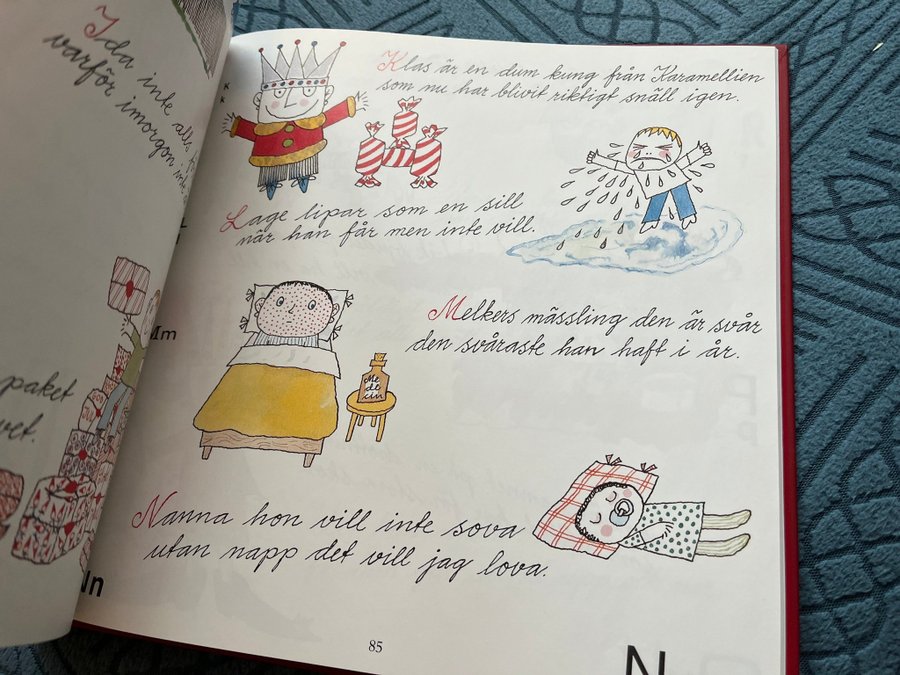 Ida inte alls
varför imorgon inte
paket
K
K
Klas är en dum kung från Karamellien
som nu har blivit riktigt snäll igen.
Lage lipar som en sill
när han får men inte vill.
Mm
Melkers mässling den är svår
den svåraste han haft i år.
Me
di
cin
Nanna hon vill inte sova
utan napp det vill jag lova.
Nn
85
N